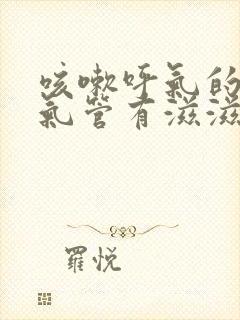 咳嗽呼氣的
氣管有滋滋
羅悅